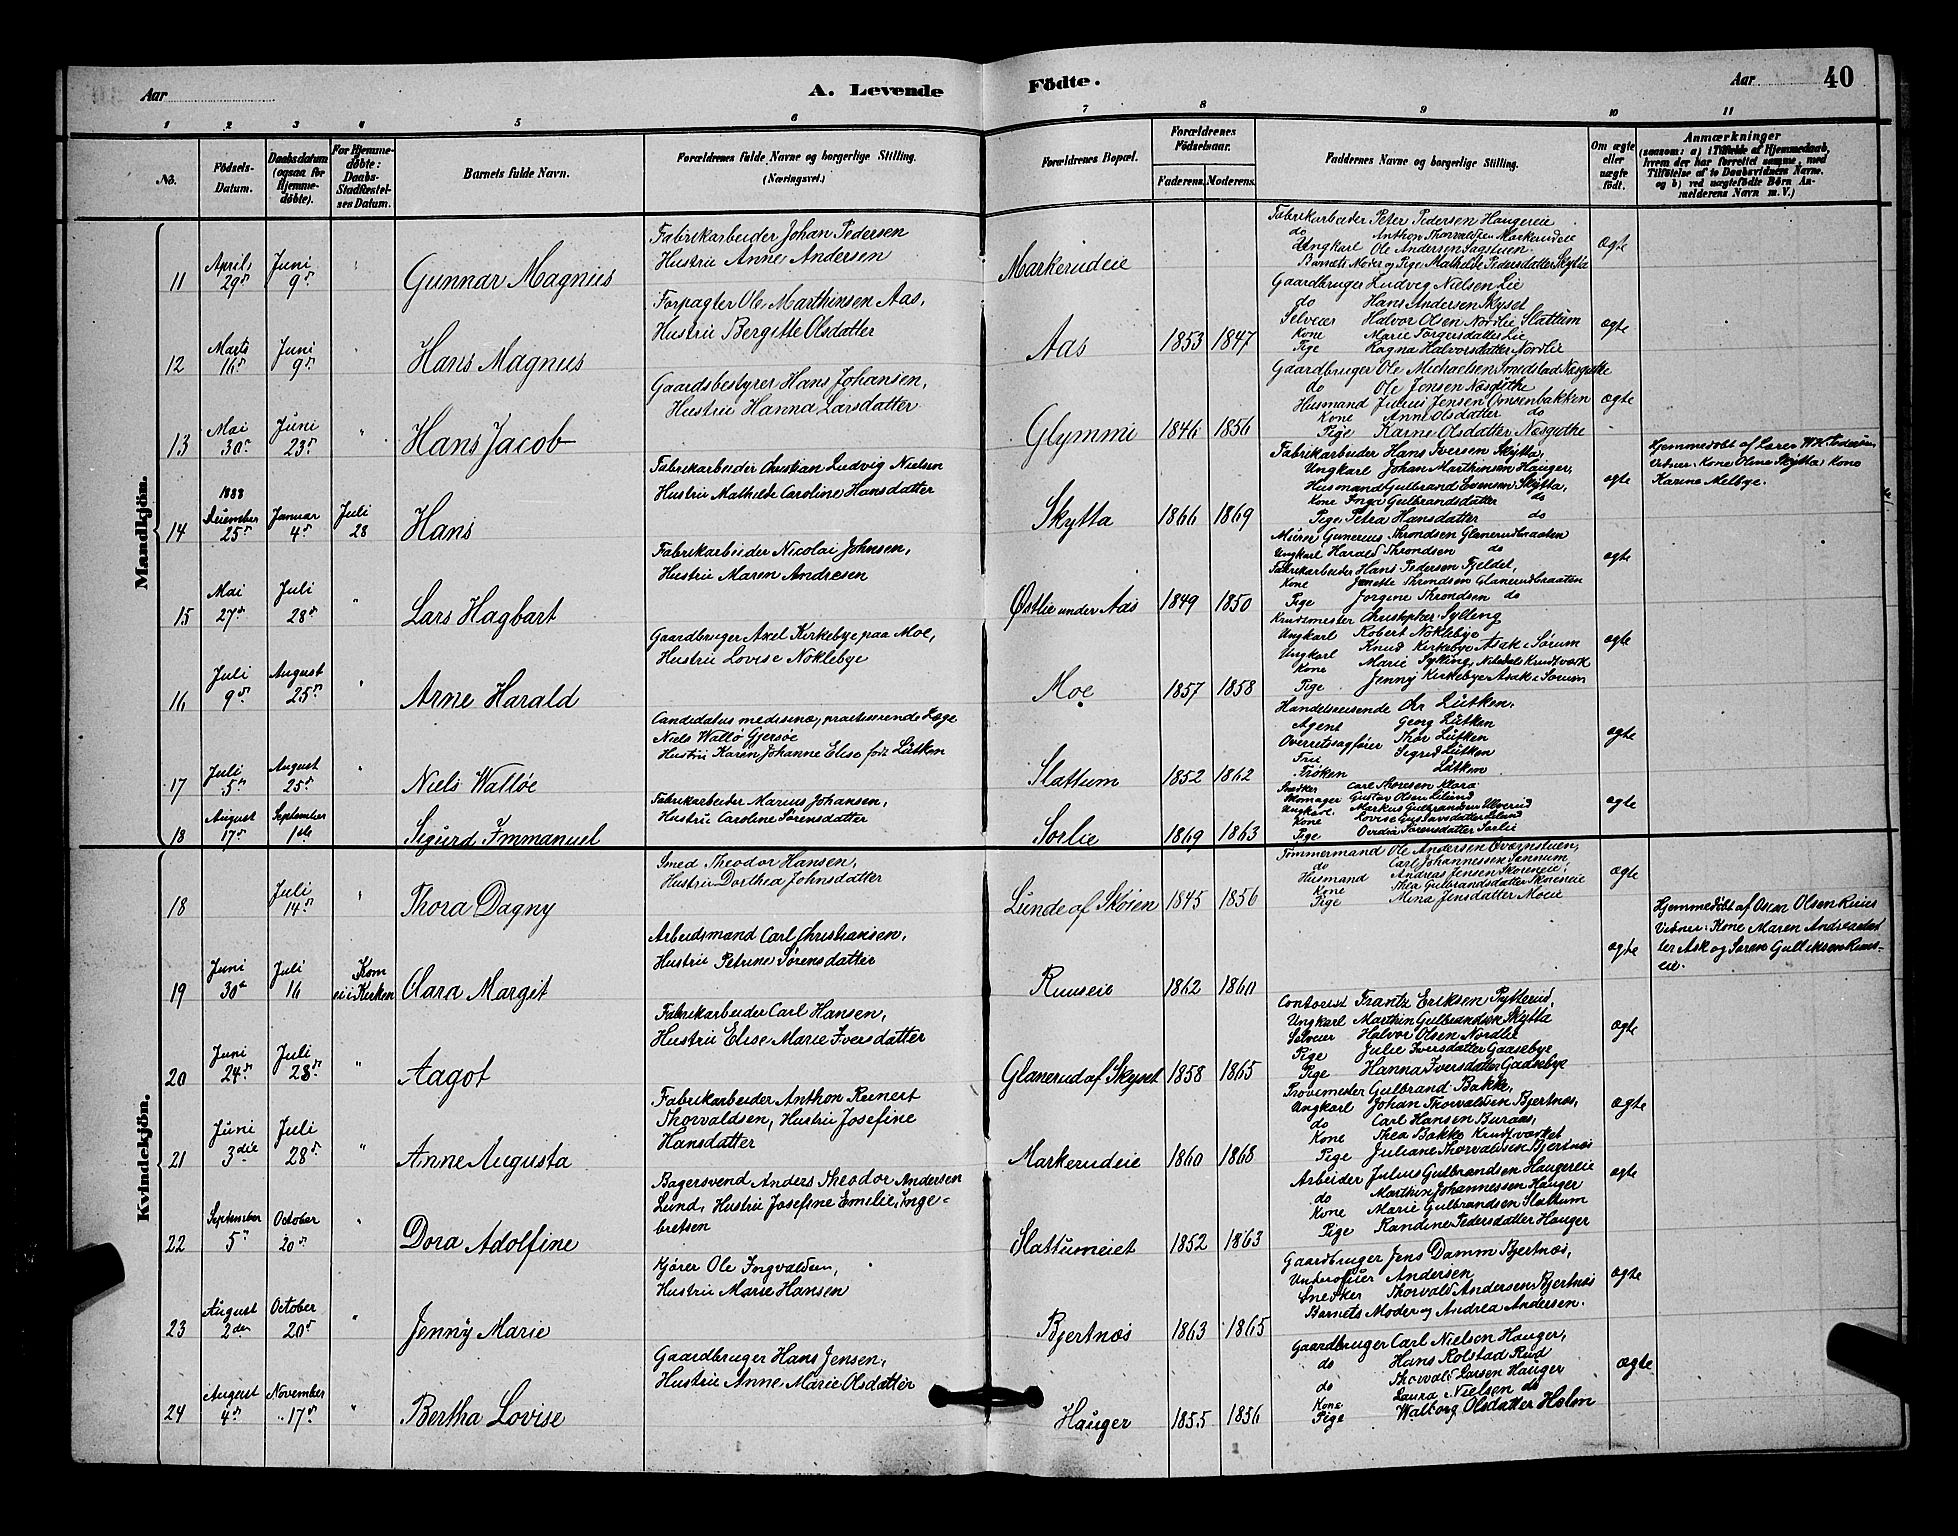 Aar
A. Levende
Födte.
Aar
40
1 2 3 4 5 6 7 8 9 10 11
No.
Födsels-Datum.
Daabsdatum (ogsaa for Hjemme-döbte).
For Hjemme-döbte: Daabs-Stadfæstel-ses Datum.
Barnets fulde Navn.
Forældrenes fulde Navne og borgerlige Stilling. (Næringsvei.)
Forældrenes Bopæl.
Forældrenes Födselsaar.
Faderens. Moderens.
Faddernes Navne og borgerlige Stilling.
Om ægte eller uægte födt.
Anmærkninger
(saasom: a) i Tilfælde af Hjemmedaab, hvem der har forrettet samme, med Tilföielse af to Daabsvidners Navne. og b) ved uægtefödte Börn An-melderens Navn m. V.)
Mandkjön.
11 April 29de Juni 9de " Gunnar Magnus
Fabrikarbeider Johan Pedersen
Hustru Anne Andersen
Markerudeie
Fabrikarbeider Peter Pedersen Haugereie
do Anthon Thorvaldsen Markerudeie
Ungkarl Ole Andersen Sagstuen
Barnets Moder og Pige Mathilde Pedersdatter Skytta
Ægte
12 Marts 16de Juni 9de " Hans Magnus
Forpagter Ole Marthinsen Aas,
Hustru Bergitte Olsdatter
Aas 1853 1847
Gaardbruger Ludvig Nielsen Lie
do Hans Andersen Skyset
Selveier Halvor Olsen Nordlie Slattum
Kone Marie Torgersdatter Lie
Pige Ragna Halvorsdatter Nordlie
ægte
13 Mai 30de Juni 23de " Hans Jacob
Gaardsbestyrer Hans Johansen,
Hustru Hanna Larsdatter
Glymmi 1846 1856
Gaardbruger Ole Michaelsen Smedstad Næsgithe
do Ole Jensen Næsgithe
Husmand Julius Jensen Omsenbakken
Kone Anne Olsdatter do
Pige Karne Olsdatter Næsgithe
ægte
14 1888 December 25de Januar 4de Juli 28 Hans
Fabrikarbeider Christian Ludvig Nielsen
Hustru Mathilde Caroline Hansdatter
Skytta 1866 1869
Fabrikarbeider Hans Iversen Skytta,
Ungkarl Johan Marthinsen Hauger,
Husmand Gulbrand Evensen Skytta,
Kone Inga Gulbrandsdatter do
Pige Petra Hansdatter do
ægte
Hjemmedøbt af Lærer
Vidner: Kone Oline Skytta, Kone
Karine Melbye.
15 Mai 27de Juli 28de " Lars Hagbart
Fabrikarbeider Nicolai Johnsen,
Hustru Maren Andresen
Østlie under Aas 1849 1850
Murer Gunerius Throndsen Glanerudbraaten
Ungkarl Harald Throndsen do
Fabrikarbeider Hans Pedersen Fjeldet,
Kone Jenette Throndsen Glanerudbraaten
Pige Jorgine Throndsen do
ægte
16 Juli 9de August 25de " Arne Harald
Gaardbruger Axel Kirkebye paa Moe,
Hustru Lovise Noklebye
Moe 1857 1858
Krudtmester Christopher Sylling
Ungkarl Robert Noklebye
Ungkarl Knud Kirkebye Asak i Sørum
Kone Marie Sylling, Nitedals Krudtværk
Pige Jenny Kirkebye Asak i Sørum
ægte
17 Juli 5de August 25de " Niels Walløe
Candidatus medisinæ, practiserende Læge
Niels Wallø Gjersøe
Hustru Karen Johanne Elise født Lütken
Slattum 1852 1862
Handelsreisende Chr Lütken,
Agent Georg Lütken
Overretssagfører Thor Lütken
Frue Sigrid Lütken
Frøken Lütken
ægte
18 August 17de September 1ste Sigurd Immanuel
Fabrikarbeider Marius Johansen,
Hustru Caroline Sørensdatter
Sorlie 1869 1863
Snedker Carl Thoresen Klara
Skomager Gustav Olsen Lilund
Ungkarl Markus Gulbrandsen Ulverud
Kone Lovise Gustavsdatter Lilund
Pige Ovidia Sørensdatter Sorlie
ægte
Kvindekjön.
18 Juli 14de " Thora Dagny
Smed Theodor Hansen,
Hustru Dorthea Johnsdatter
Lunde af Skøien 1845 1856
Tømmermand Ole Andersen Qværnstuen,
do Carl Johannessen Sannum,
Husmand Andreas Jensen Skoieneie,
Kone Thea Gulbrandsdatter Skoieneie
Pige Mina Jensdatter Moeie
ægte
19 Juni 30de Juli 16 Kom ei i Kirken Clara Margit
Arbeidsmand Carl Christiansen,
Hustru Petrine Sørensdatter
Ruuseie 1862 1860
ægte
Hjemmedøbt af Oscar Olsen Ruus
Vidner: Kone Maren Andreasdat-
ter Ask og Søren Gulliksen Ruus-
eie.
20 Juni 24de Juli 28de " Aagot
Fabrikarbeider Carl Hansen,
Hustru Elise Marie Iversdatter
Glanerud af Skyset 1858 1865
Contorist Frantz Eriksen Rytterud,
Ungkarl Marthin Gulbrandsen Skytta
Selveier Halvor Olsen Nordlie
Pige Julie Iversdatter Gaasebye
Pige Hanna Iversdatter Gaasebye
ægte
21 Juni 3die Juli 28de " Anne Augusta
Fabrikarbeider Anthon Reinert
Thorvaldsen, Hustru Josefine
Hansdatter
Markerudeie 1860 1868
Prøvemester Gulbrand Bakke,
Ungkarl Johan Thorvaldsen Bjertnæs,
do Carl Hansen Buraas,
Kone Thea Bakke Krudtværket
Pige Juliane Thorvaldsen Bjertnæs
ægte
22 September 5de October 20de " Dora Adolfine
Bagersvend Anders Theodor Andersen
Lund, Hustru Josefine Emilie Inge-
bretsen
Slattumeiet 1852 1863
Arbeider Julius Gulbrandsen Haugereie
do Marthin Johannessen Hauger
Kone Marie Gulbrandsen Slattum
Pige Randine Pedersdatter Hauger
ægte
23 August 2den October 20de " Jenny Marie
Kjører Ole Ingvaldsen,
Hustru Marie Hansen
Bjertnæs 1863 1865
Gaardbruger Jens Damm Bjertnæs,
Underofficer Andersen
Snedker Thorvald Andersen Bjertnæs
Barnets Moder og Andrea Andersen.
ægte
24 August 4de November 17de " Bertha Lovise
Gaardbruger Hans Jensen,
Hustru Anne Marie Olsdatter
Hauger 1855 1856
Gaardbruger Carl Nielsen Hauger,
do Hans Rolstad Rud
do Thorvald Larsen Hauger
Kone Laura Nielsen do
Pige Walborg Olsdatter Holm
ægte